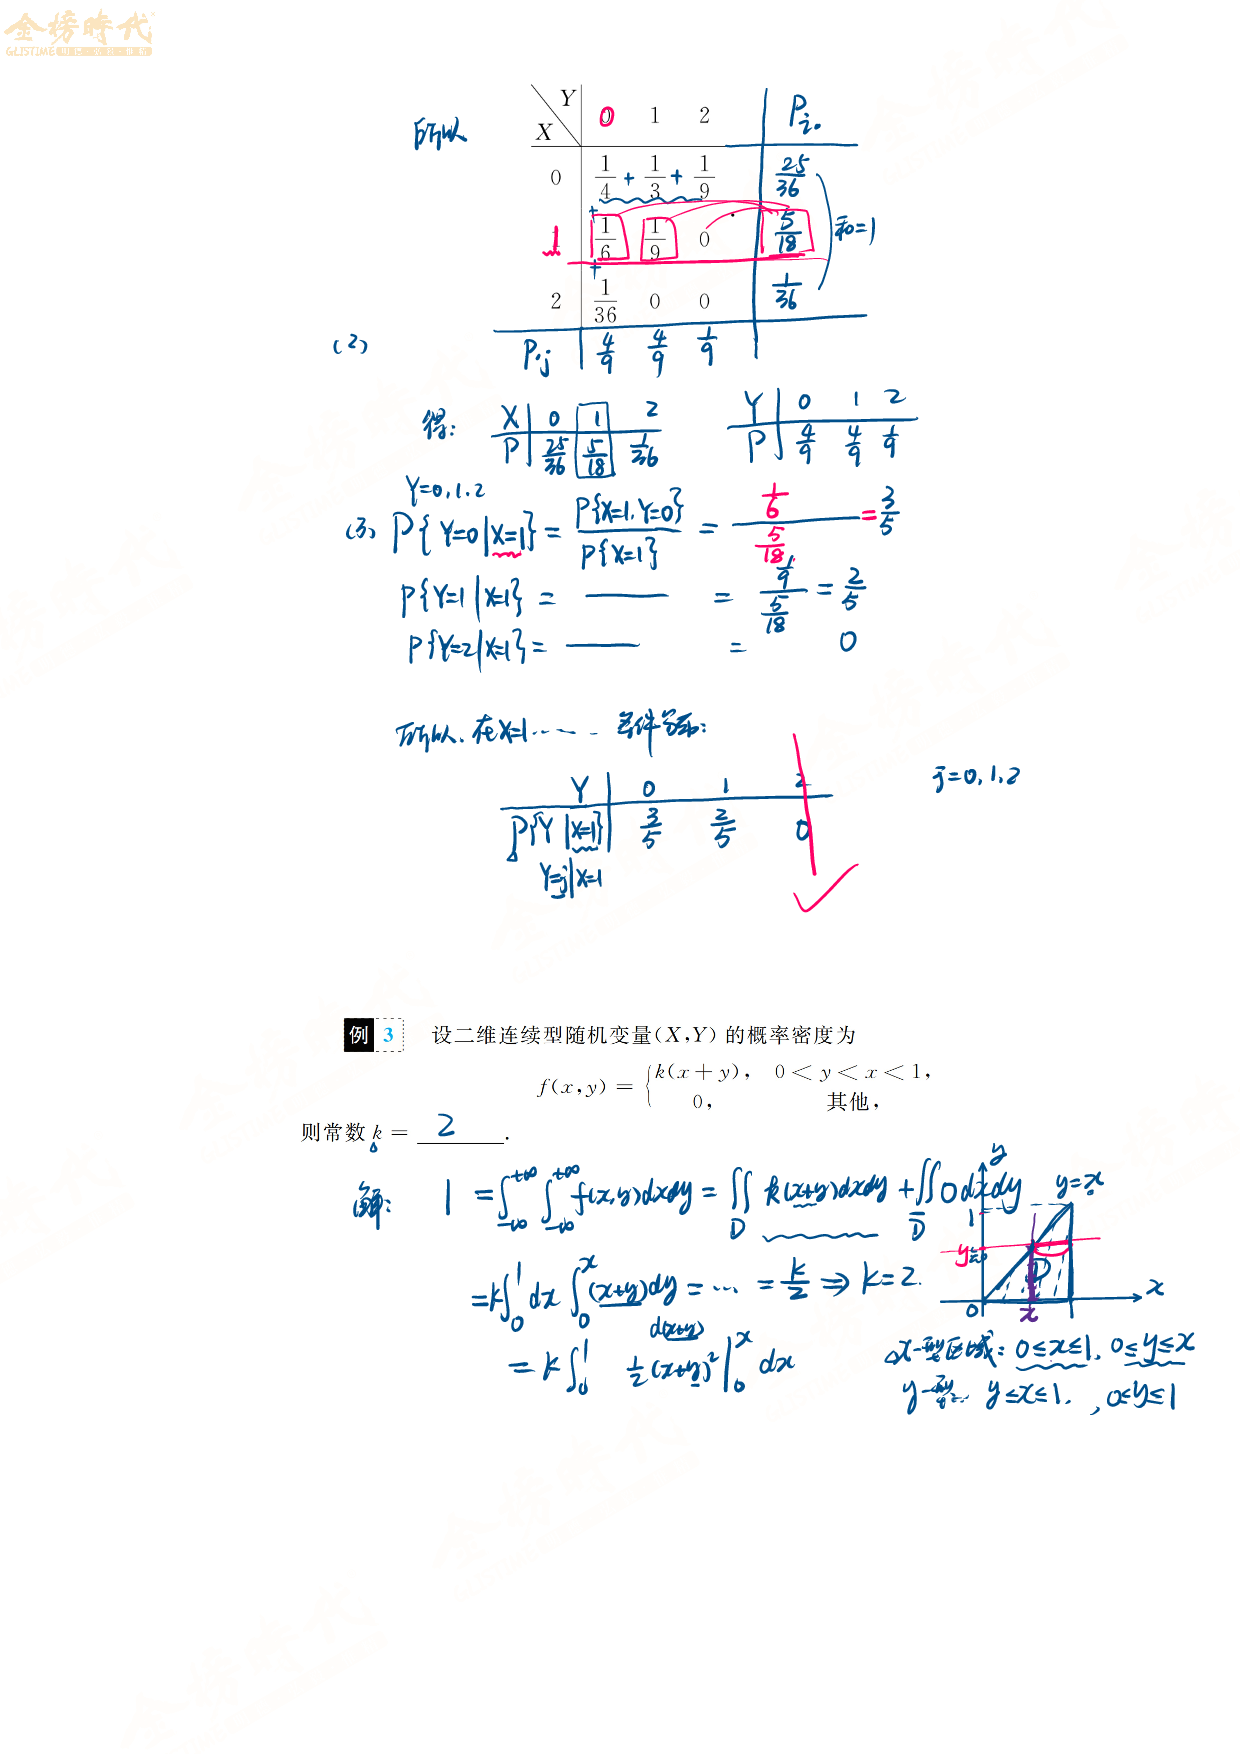 金榜時代
GLISTIME
所以
Y 0 1 2 Pi·
X
0 1/4 + 1/3 + 1/9 25/36
+
1 1/6 1/9 0 5/18 和=1
+
2 1/36 0 0 1/36
(2) P·j 4/9 4/9 1/9
得: X 0 1 2 Y 0 1 2
P 25/36 5/18 1/36 P 4/9 4/9 1/9
Y=0,1,2
(3) P{Y=0|X=1} = P{X=1,Y=0}/P{X=1} = (1/6)/(5/18) = 3/5
P{Y=1|X=1} = —— = (1/9)/(5/18) = 2/5
P{Y=2|X=1} = —— = 0
所以,在X=1…… 条件分布:
Y 0 1 2 j=0,1,2
P{Y|X=1} 3/5 2/5 0
Y=j|X=1
例 3 设二维连续型随机变量(X,Y) 的概率密度为
f(x,y) = { k(x+y), 0<y<x<1,
0, 其他,
则常数 k = 2 .
解: 1 = ∫_{-∞}^{+∞} ∫_{-∞}^{+∞} f(x,y)dxdy = ∬_D k(x+y)dxdy + ∬_D̄ 0dxdy
= k∫_0^1 dx ∫_0^x (x+y)dy = … = k/2 ⇒ k=2.
d(x+y)
= k∫_0^1 1/2(x+y)²|_0^x dx
y
y=x
1
y
D
0 x x
x-型区域: 0≤x≤1, 0≤y≤x
y-型 y≤x≤1, 0≤y≤1